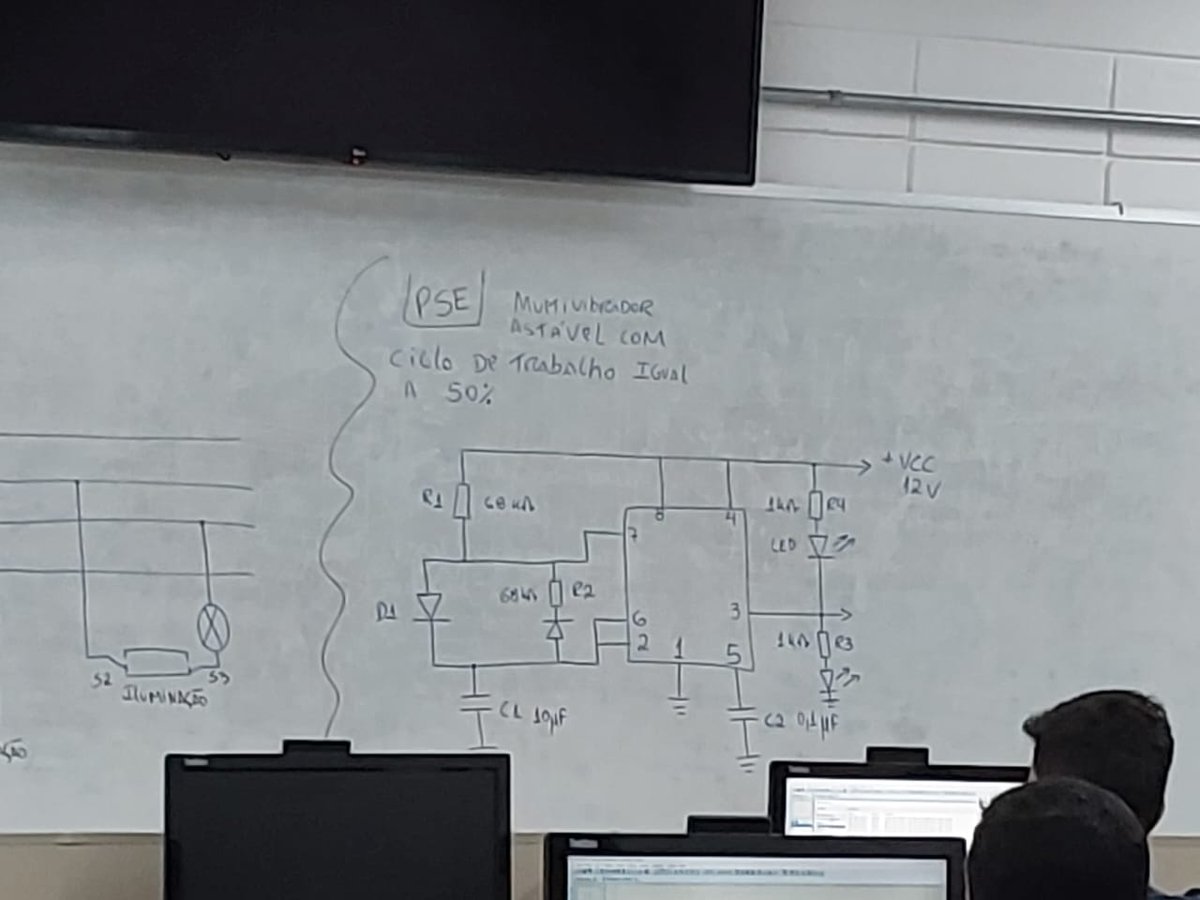 PSE
MUlTIVIbRADOR
ASTÁVEL COM
CIClO DE TRAbAlhO IGUAL
A 50%
+ VCC
12V
R1 68 kΩ
8
4
1kΩ R4
7
LED
68kΩ R2
D1
6
3
2
1kΩ R3
1
5
S2
S3
ILUMINAÇÃO
C1 10µF
C2 0,1µF